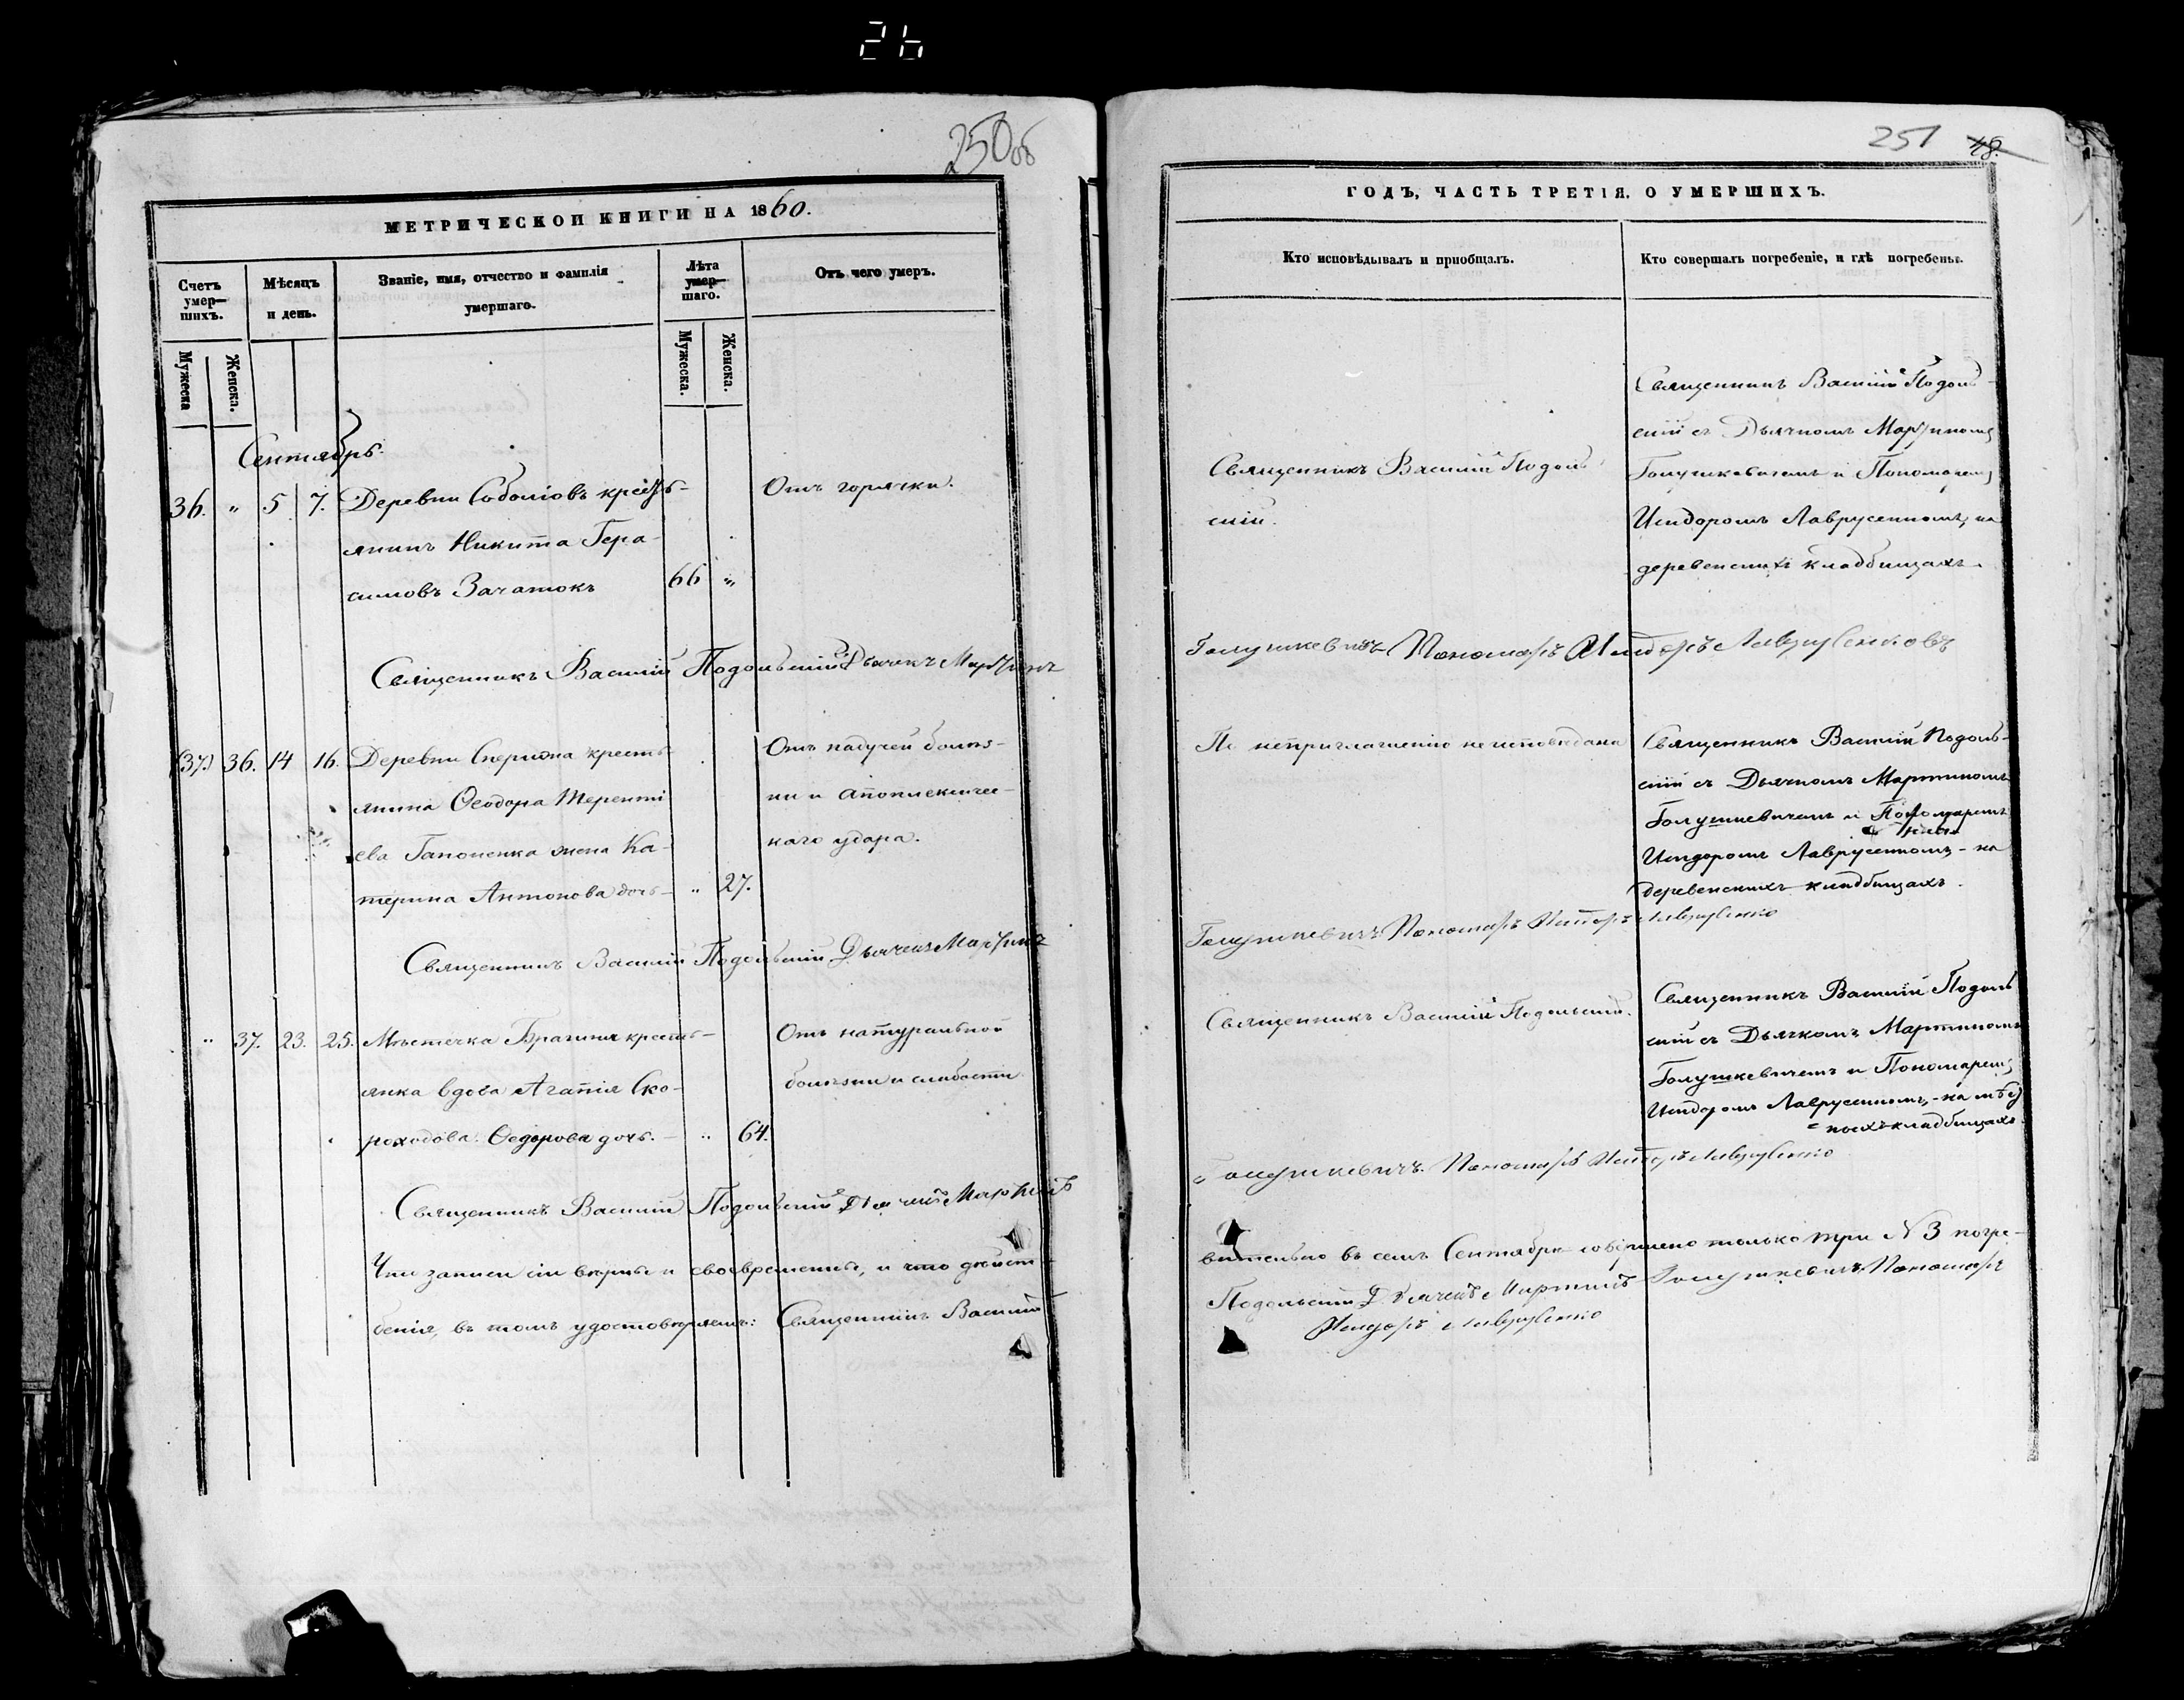 26
250об
МЕТРИЧЕСКОЙ КНИГИ НА 1860.
Счетъ умер— шихъ.
Мѣсяцъ и день.
Званіе, имя, отчество и фамилія умершаго.
Лѣта умер— шаго.
Отъ чего умеръ.
Мужеска
Женска.
Мужеска.
Женска.
Сентябрь.
36. " 5 7. Деревни Соболіовъ кресть- Отъ горячки.
янинъ Никита Гера-
симовъ Зачатокъ 66 "
Священникъ Василій Подольскій Дьячекъ Мартинъ
(37.) 36. 14 16. Деревни Сперижа кресть- Отъ падучей болѣз-
янина Ѳеодора Теренті ни и апоплексичес-
ева Гапоненка жена Ка- каго удара.
терина Антонова дочь- " 27.
Священникъ Василій Подольскій Дьячекъ Мартинъ
" 37. 23. 25. Мѣстечка Брагиня кресть- Отъ натуральной
янка вдова Агапія Ско- болѣзни и слабости
роходова. Ѳедорова дочь. - " 64.
Священникъ Василій Подольскій Дьячекъ Мартинъ
Что записи сіи вѣрны и своевременны, и что дѣйст-
бенія, въ томъ удостовѣряемъ: Священникъ Василій
251 48.
ГОДЪ, ЧАСТЬ ТРЕТІЯ, О УМЕРШИХЪ.
Кто исповѣдывалъ и пріобщалъ.
Кто совершалъ погребеніе, и гдѣ погребены.
Священникъ Василій Подоль-
скій.
Священникъ Василій Подоль-
скій съ Дьячкомъ Мартиномъ
Голушкевичемъ и Пономаремъ
Исидоромъ Лаврусенкомъ, на
деревенскихъ кладбищахъ.
Голушкевичъ Пономарь Исидоръ Лаврусенковъ
По неприглашенію не исповѣдана
Священникъ Василій Подоль-
скій съ Дьячкомъ Мартиномъ
Голушкевичемъ и Пономаремъ
Исидоромъ Лаврусенкомъ, - на
деревенскихъ кладбищахъ.
Голушкевичъ Пономарь Исидоръ Лаврусенко
Священникъ Василій Подольскій.
Священникъ Василій Подоль
скій съ Дьячкомъ Мартиномъ
Голушкевичемъ и Пономаремъ
Исидоромъ Лаврусенкомъ, - на
кладбищахъ.
Голушкевичъ. Пономарь Исидоръ Лаврусенко
вительно въ семъ Сентябрѣ совершено только три N 3 погре-
Подольскій Дьячекъ Мартинъ Голушкевичъ Пономарь
Исидоръ Лаврусенко